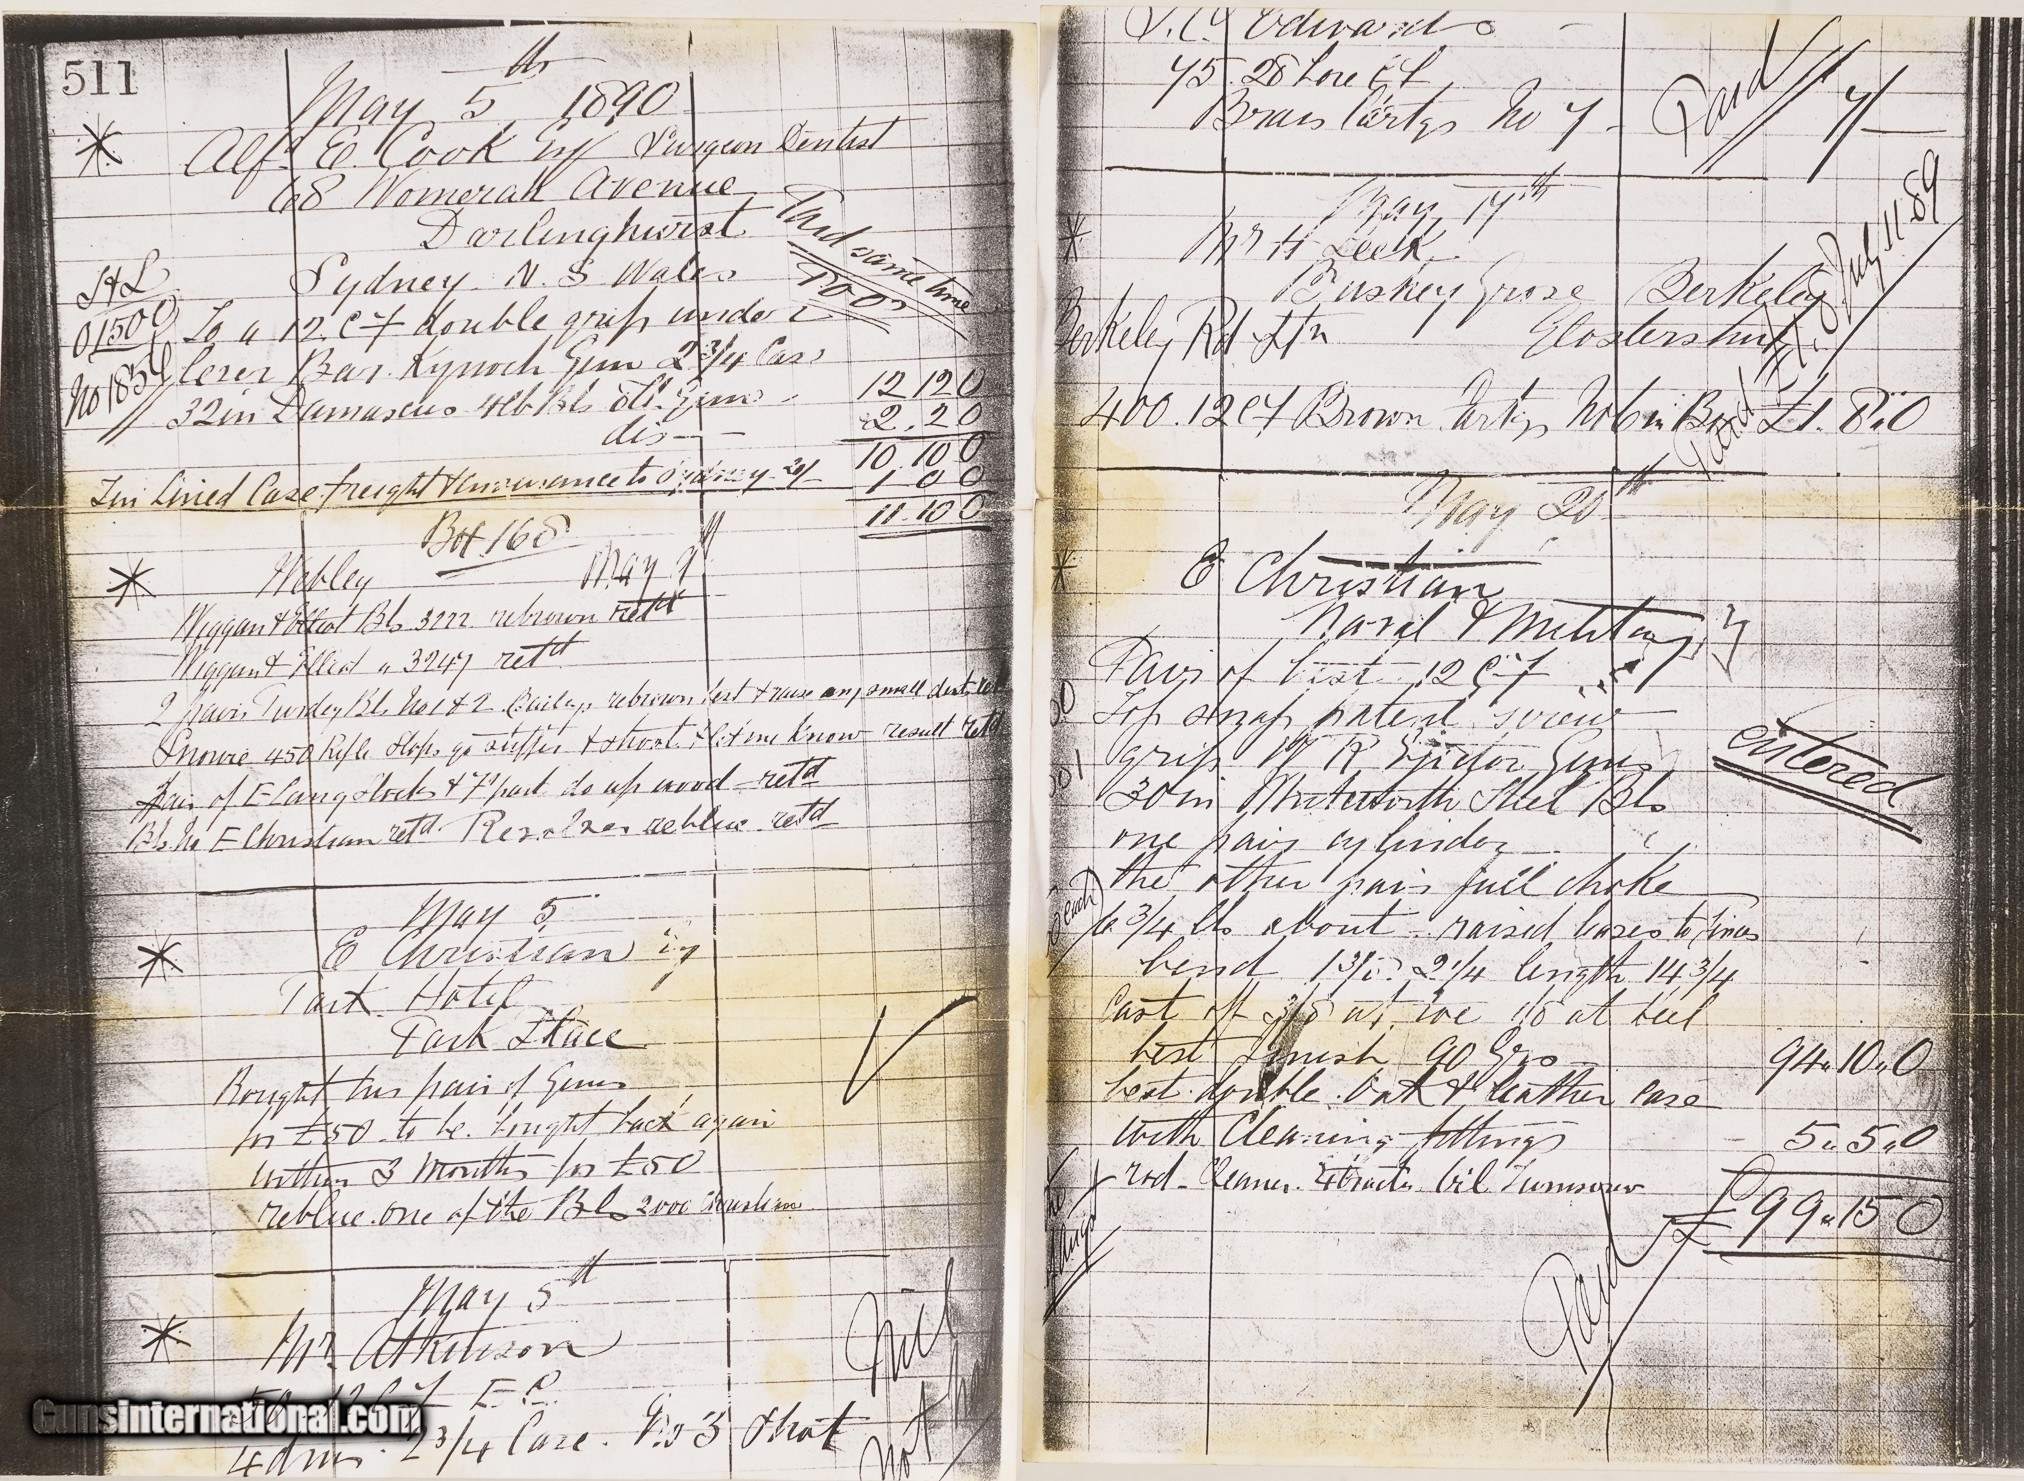 511
May 5th 1890
Alfd E. Cook Esq Surgeon Dentist
68 Womerah Avenue
Darlinghurst
Sydney N. S Wales
Paid same time
No 1856
To a 12 Cf double grip under
lever Bar Kynoch Gun 2 3/4 Case
32in Damascus Bls Gun 12 12 0
dis 2. 2 0
10. 10 0
Tin Lined Case freight & insurance to Sydney 20/- 1 0 0
11. 10 0
Box 168
Webley May 9th
Wiggan & Elliot Bls 3222 rebrown retd
Wiggan & Elliot " 3247 retd
2 pairs Turkey Bls No 1 & 2 rebrown best & raise any small dents
450 Rifle stops go stiffer & shoot & let me know result retd
Pair of E Lang Stocks & F part do up wood retd
Bls No E Christian retd Revolver reblue retd
May 5
E Christian Esq
Park Hotel
Park Place
Bought his pair of Guns
for £50 to be bought back again
within 3 months for £50
reblue one of the Bls 2000
May 5th
Mr Atkinson
12 Cf E.C.
4 drms. 2 3/4 Case. No 3 shot
not
Edwards
75. 28 bore Cf
Brass Cartgs No 7 Paid 7/-
May 17th
Mr H Leek
Grove Berkeley
Berkeley Rd Stn Glostershire
July 11 89
400. 12 Cf Brown Cartgs No 6 in Box £1. 8. 0
Paid
May 20th
E Christian
Naval & Military
Pair of best 12 Cf
Top snap patent screw
grip W R Ejector Guns
30in Whitworth Steel Bls
entered
one pair cylinder
the other pair full choke
6 3/4 lbs about raised bases to fences
bend 1 3/8 2 1/4 length 14 3/4
Cast off 3/8 at toe 1/8 at heel
best finish 90 Gns 94. 10. 0
best double Oak & leather case
with Cleaning fittings 5. 5. 0
rod Cleaner Oil Turnscrew
£99. 15 0
Paid
GunsInternational.com